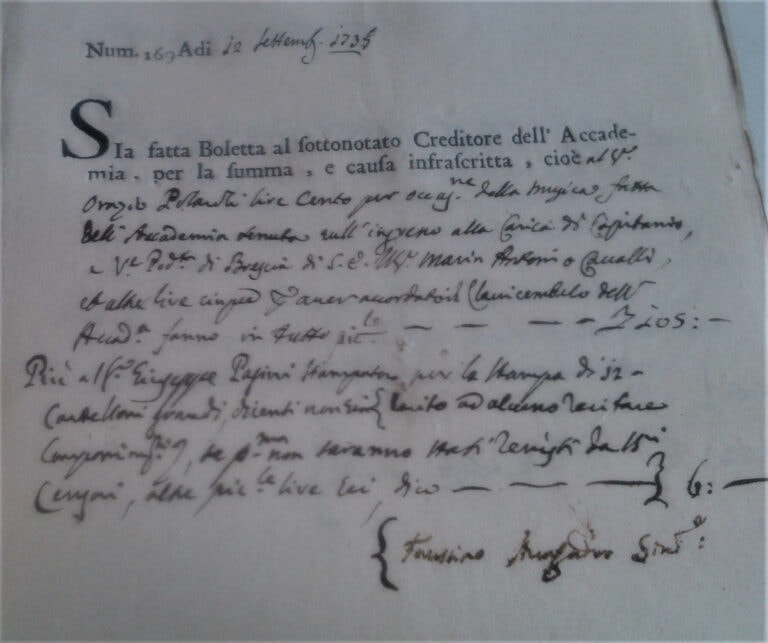 Num. 169 Adi 12 Settemb. 173
SIa fatta Boletta al sottonotato Creditore dell' Accade-
mia, per la summa, e causa infrascritta, cioè al Sr.
Orazio Polaroli live Cento per occas.ne della Musica fatta
dell' Accademia tenuta sull' ingresso alla Carica di Capitanio,
e V.e Pod.tà di Brescia di S. E. Marin Antonio Cavalli,
et altre live cinque aver accordato il Clavicembelo dell'
Accad.a fanno in tutto — — — — 105: —
Più al Sr. Giuseppe Pasini Stampatore per la Stampa di 12
Cartelloni grandi, dicenti non sia lecito ad alcuno recitare
se p.ma non saranno stati revisti da Ssri
Censori, altre pic.le live sei, dico — — — 6: —
Faustino Avogadro Sind.o: